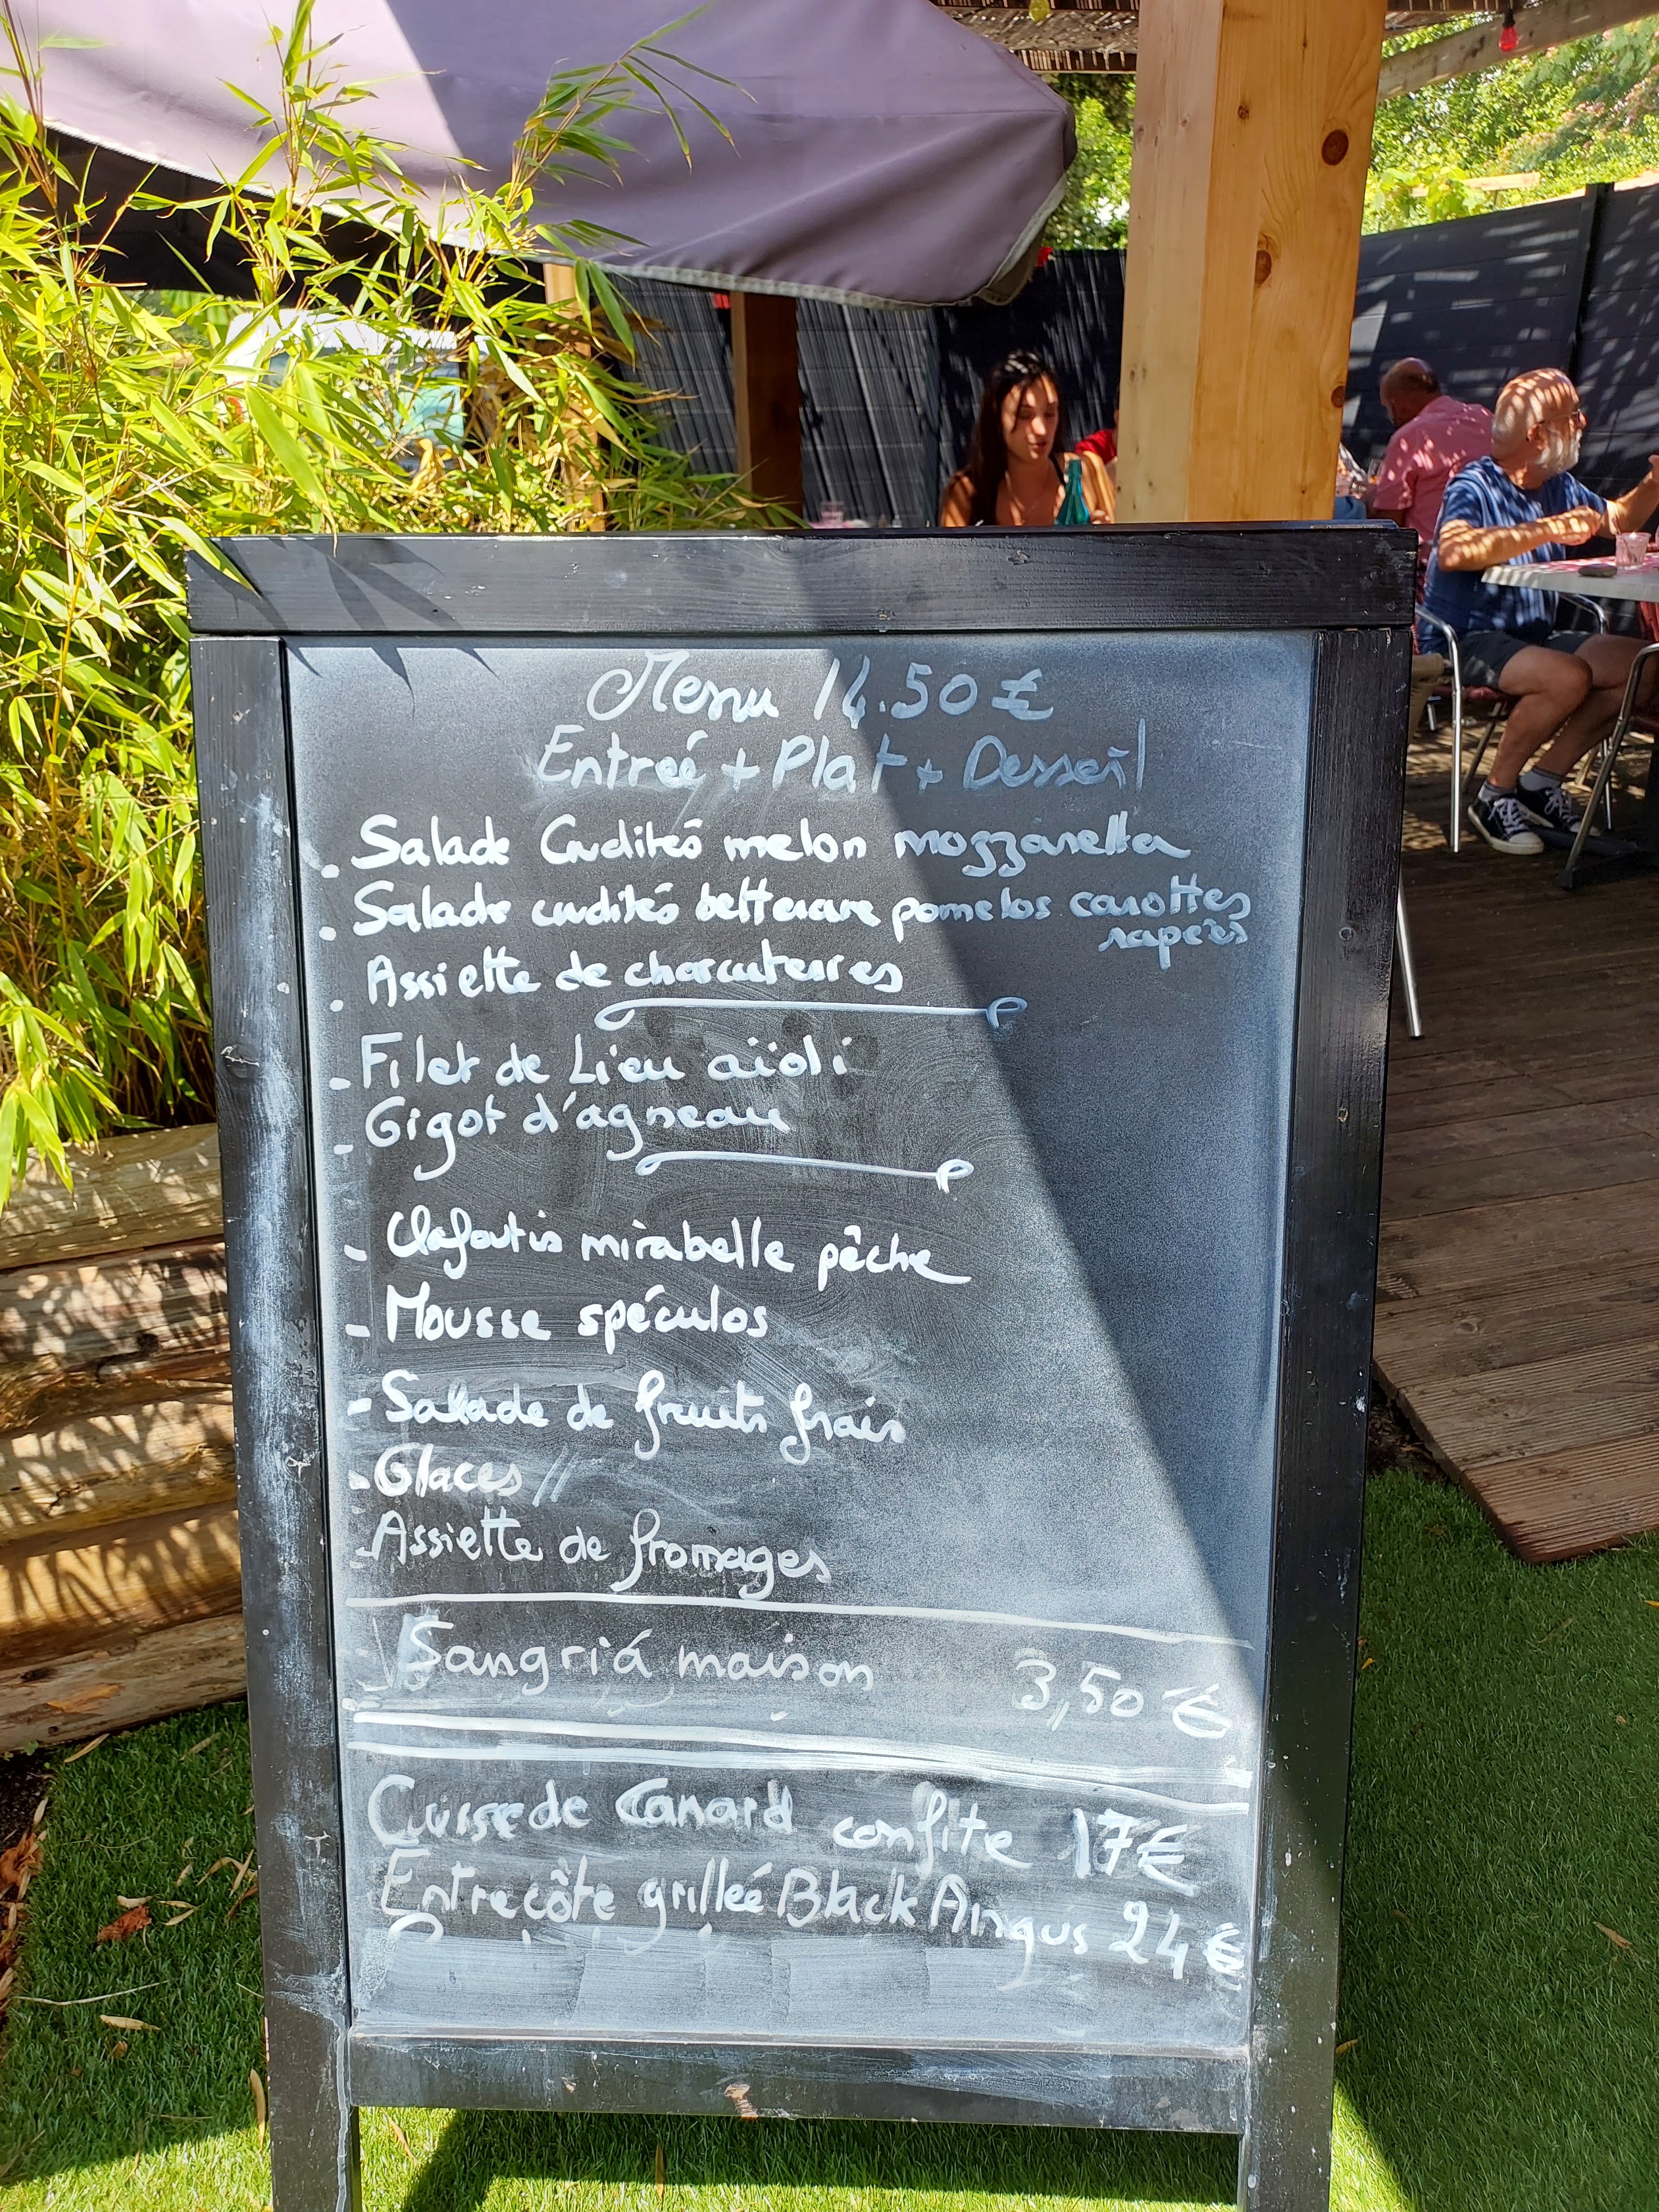 Menu 14.50 €
Entreé + Plat + Dessert
. Salade Crudités melon mozzarella
. Salade crudités betterave pomelos carottes
rapées
. Assiette de charcuteries
- Filet de Lieu aïoli
- Gigot d'agneau
- Clafoutis mirabelle pêche
- Mousse spéculos
- Salade de fruits frais
- Glaces //
- Assiette de fromages
Sangriá maison 3,50 €
Cuisse de Canard confite 17€
Entrecôte grilleé Black Angus 24 €